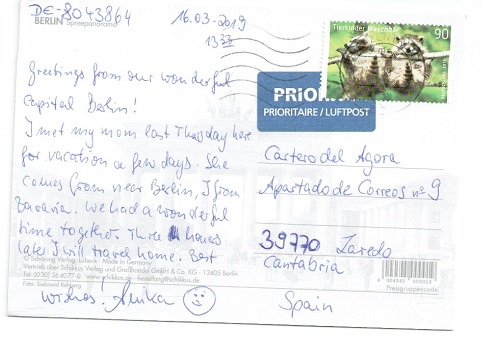 DE-8043864
BERLIN Spreepanorama
16.03-2019
13:33
Tierkinder Waschbär
90
PRIORITAIRE / LUFTPOST
Greetings from our wonderful
Capital Berlin!
I met my mom last Thursday here
for vacation a few days. She
comes from near Berlin, I from
Bavaria. We had a wonderful
time together. Three hours
later I will travel home. Best
wishes! Anika
Cartero del Agora
Apartado de Correos nº 9
39770 Laredo
Cantabria
Spain
© Schöning Verlag, Lübeck · Made in Germany
Vertrieb über Schikkus Verlag und Großhandel GmbH & Co. KG · 13405 Berlin
Preisgruppencode